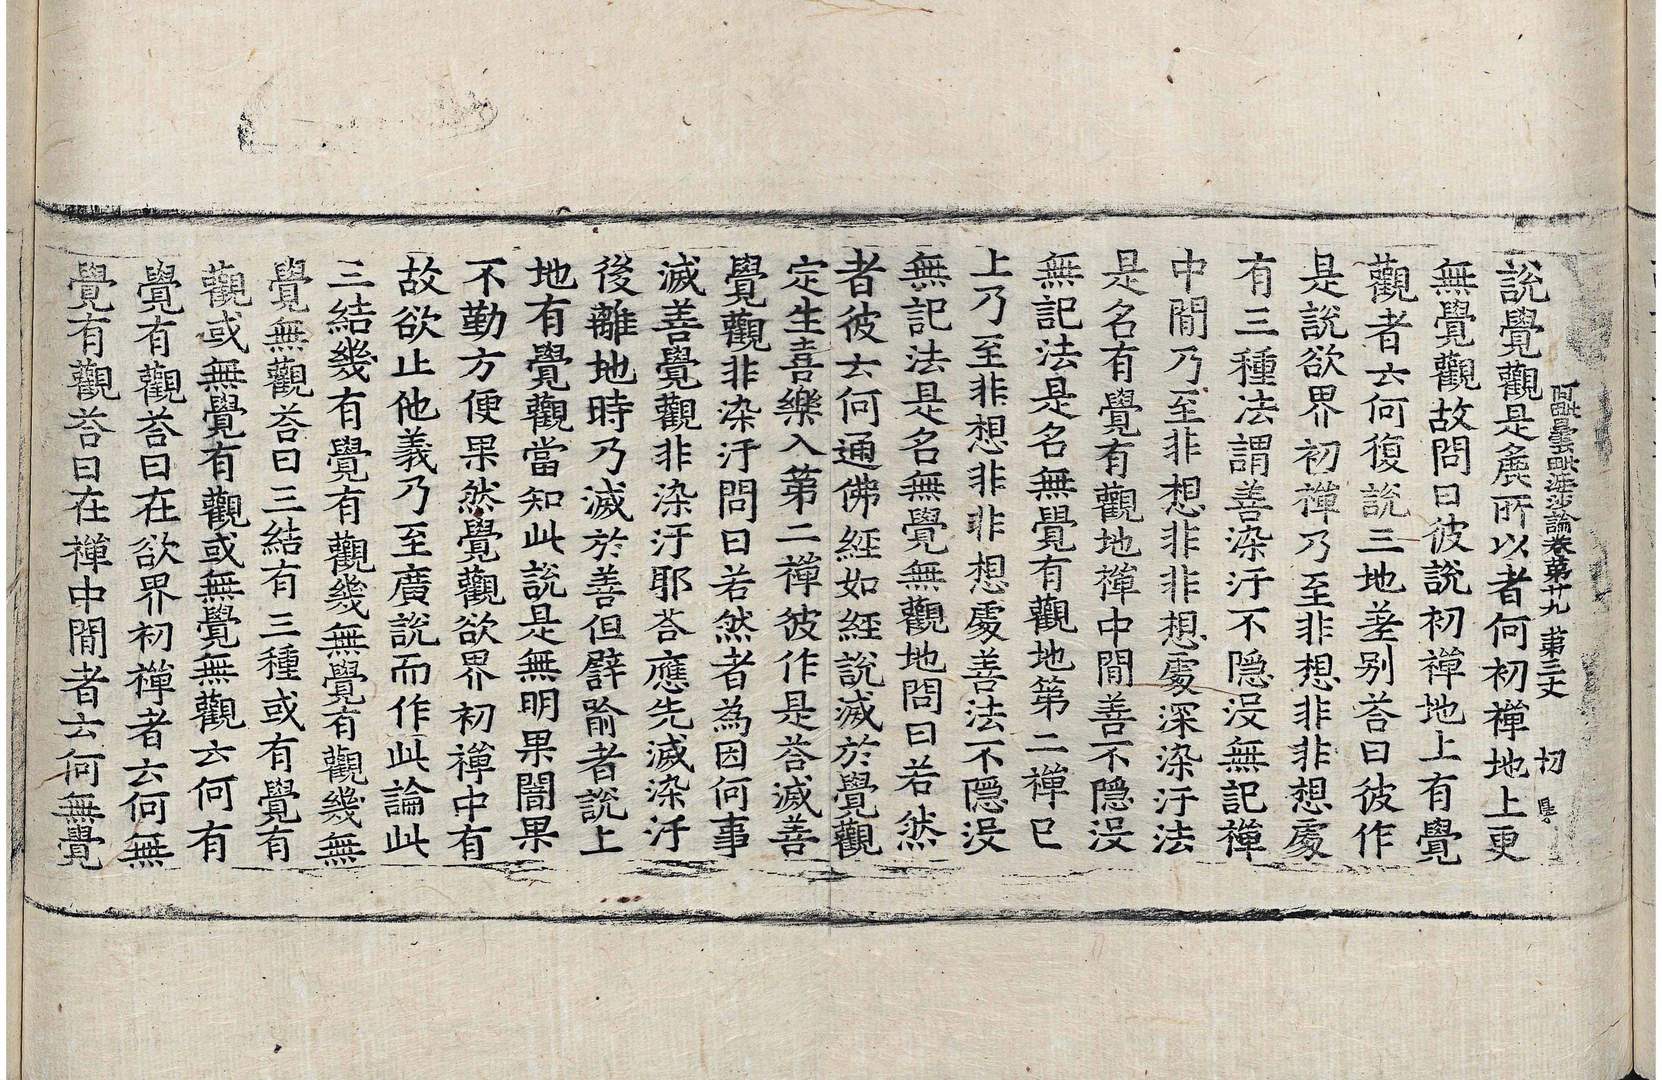 阿毗曇毗婆沙論卷第廿九 第三丈 切
說覺觀是麁所以者何初禪地上更
無覺觀故問曰彼說初禪地上有覺
觀者云何復說三地差別荅曰彼作
是說欲界初禪乃至非想非非想處
有三種法謂善染汙不隱没無記禪
中間乃至非想非非想處深染汙法
是名有覺有觀地禪中間善不隱没
無記法是名無覺有觀地第二禪已
上乃至非想非非想處善法不隱没
無記法是名無覺無觀地問曰若然
者彼云何通佛經如經說滅於覺觀
定生喜樂入第二禪彼作是荅滅善
覺觀非染汙問曰若然者為因何事
滅善覺觀非染汙耶荅應先滅染汙
後離地時乃滅於善但譬喻者說上
地有覺觀當知此說是無明果闇果
不勤方便果然覺觀欲界初禪中有
故欲止他義乃至廣說而作此論此
三結幾有覺有觀幾無覺有觀幾無
覺無觀荅曰三結有三種或有覺有
觀或無覺有觀或無覺無觀云何有
覺有觀荅曰在欲界初禪者云何無
覺有觀荅曰在禪中間者云何無覺